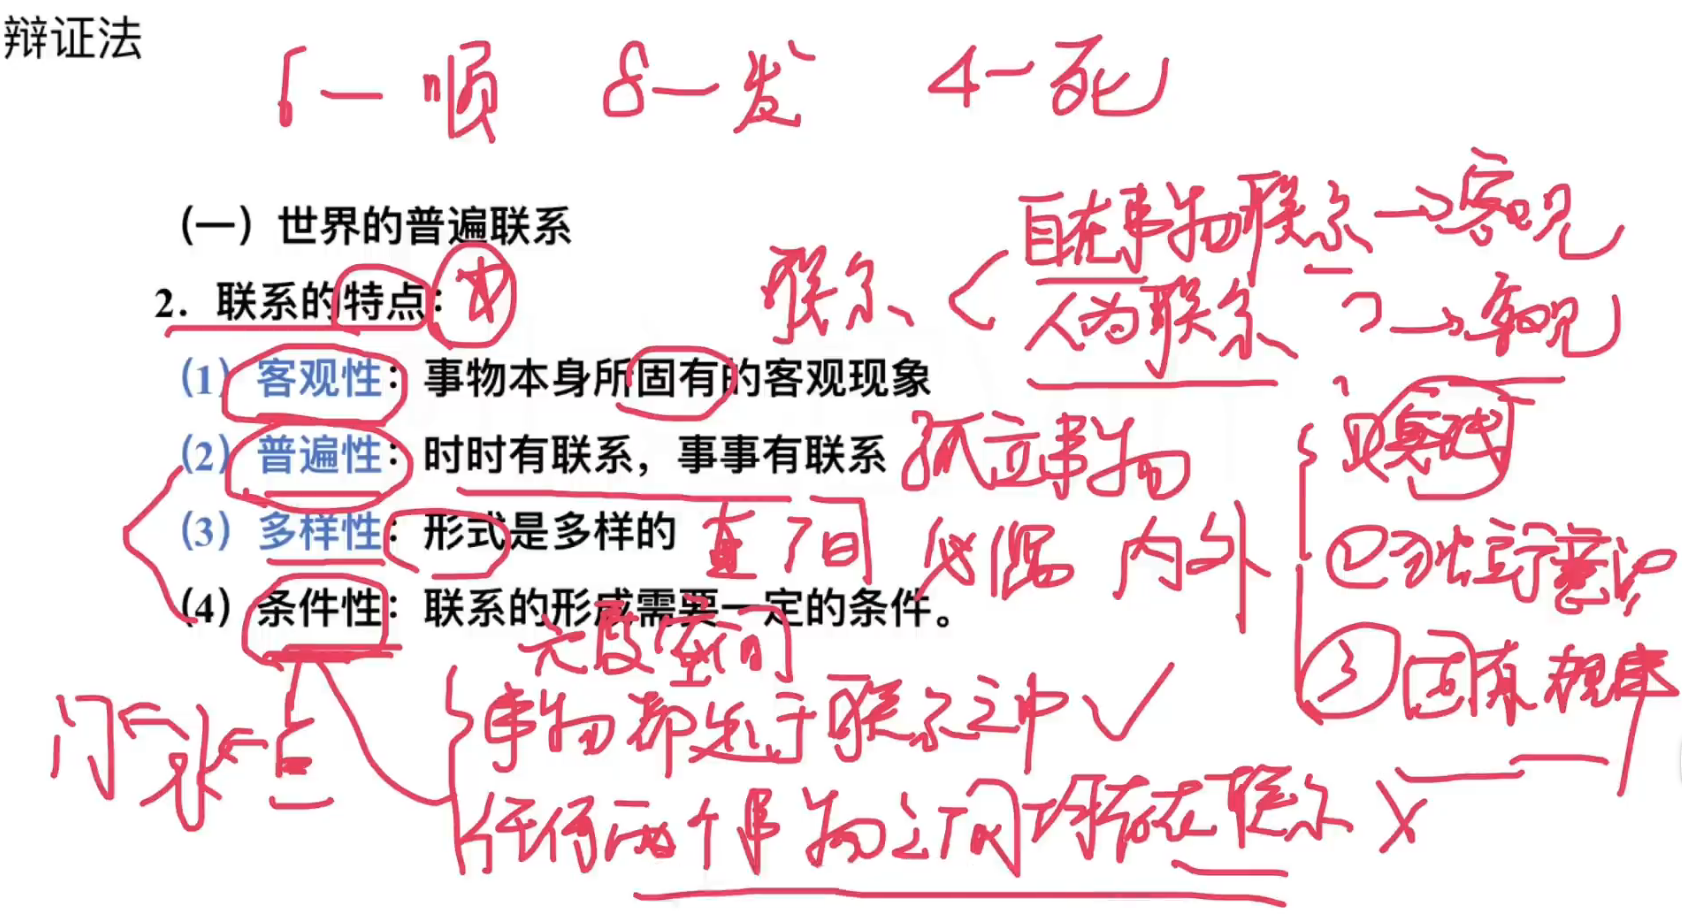 辩证法
6—顺 8—发 4—死
（一）世界的普遍联系
自在事物联系→客观
2．联系的特点：
联系
人为联系 →客观
（1）客观性：事物本身所固有的客观现象
①实践
（2）普遍性：时时有联系，事事有联系
孤立事物
（3）多样性：形式是多样的
直 间 必 偶 内外
②独立于意识
（4）条件性：联系的形成需要一定的条件。
六度空间
③固有规律
事物都处于联系之中✓
门
任何两个事物之间均存在联系×